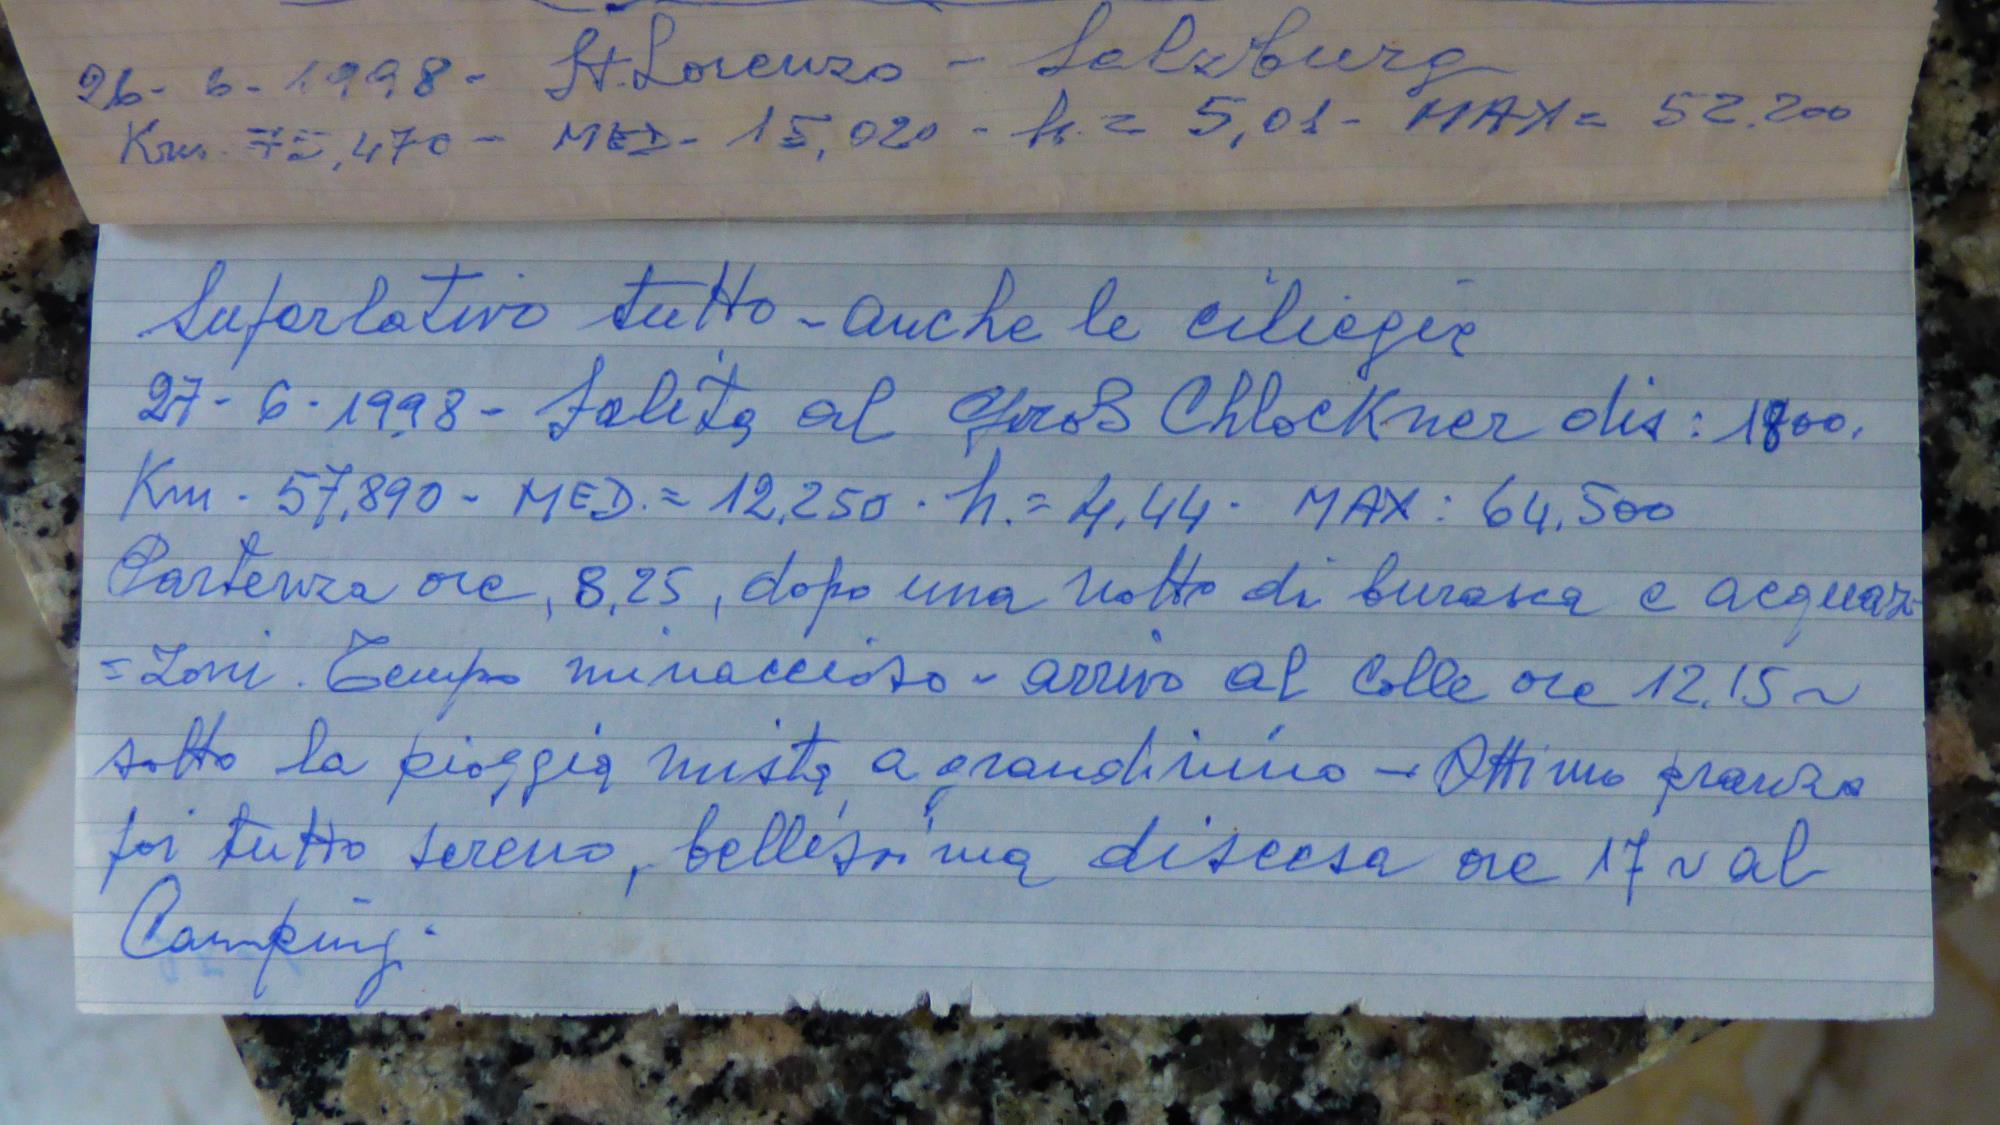 26-6-1998- St. Lorenzo - Salzburg
Km. 75,470 - MED- 15,020 - h. = 5,01 - MAX = 52.200
Superlativo tutto - anche le ciliegie
27-6-1998- Salita al Groß Chlockner dis: 1800.
Km. 57,890 - MED. = 12,250. h. = 4,44. MAX: 64,500
Partenza ore, 8,25, dopo una notte di burasca e acquaz
=zoni. Tempo minaccioso - arrivo al Colle ore 12,15 ~
sotto la pioggia mista a grandinino - Ottimo pranzo
poi tutto sereno, bellissima discesa ore 17 ~ al
Camping.